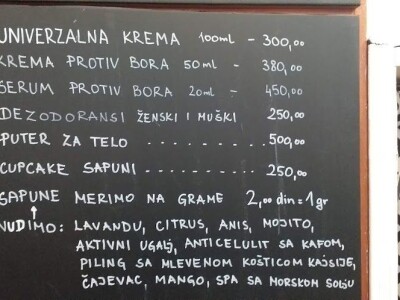 UNIVERZALNA KREMA 100ml - 300,00
KREMA PROTIV BORA 50ml - 380,00
SERUM PROTIV BORA 20ml - 450,00
DEZODORANSI ŽENSKI I MUŠKI 250,00
PUTER ZA TELO . . . . . . . . . . 500,00
CUPCAKE SAPUNI - . . . . . . . . . 250,00
SAPUNE MERIMO NA GRAME 2,00 din = 1gr
NUDIMO: LAVANDU, CITRUS, ANIS, MOJITO,
AKTIVNI UGALJ, ANTICELULIT SA KAFOM,
PILING SA MLEVENOM KOŠTICOM KAJSIJE,
ČAJEVAC, MANGO, SPA SA MORSKOM SOLJU